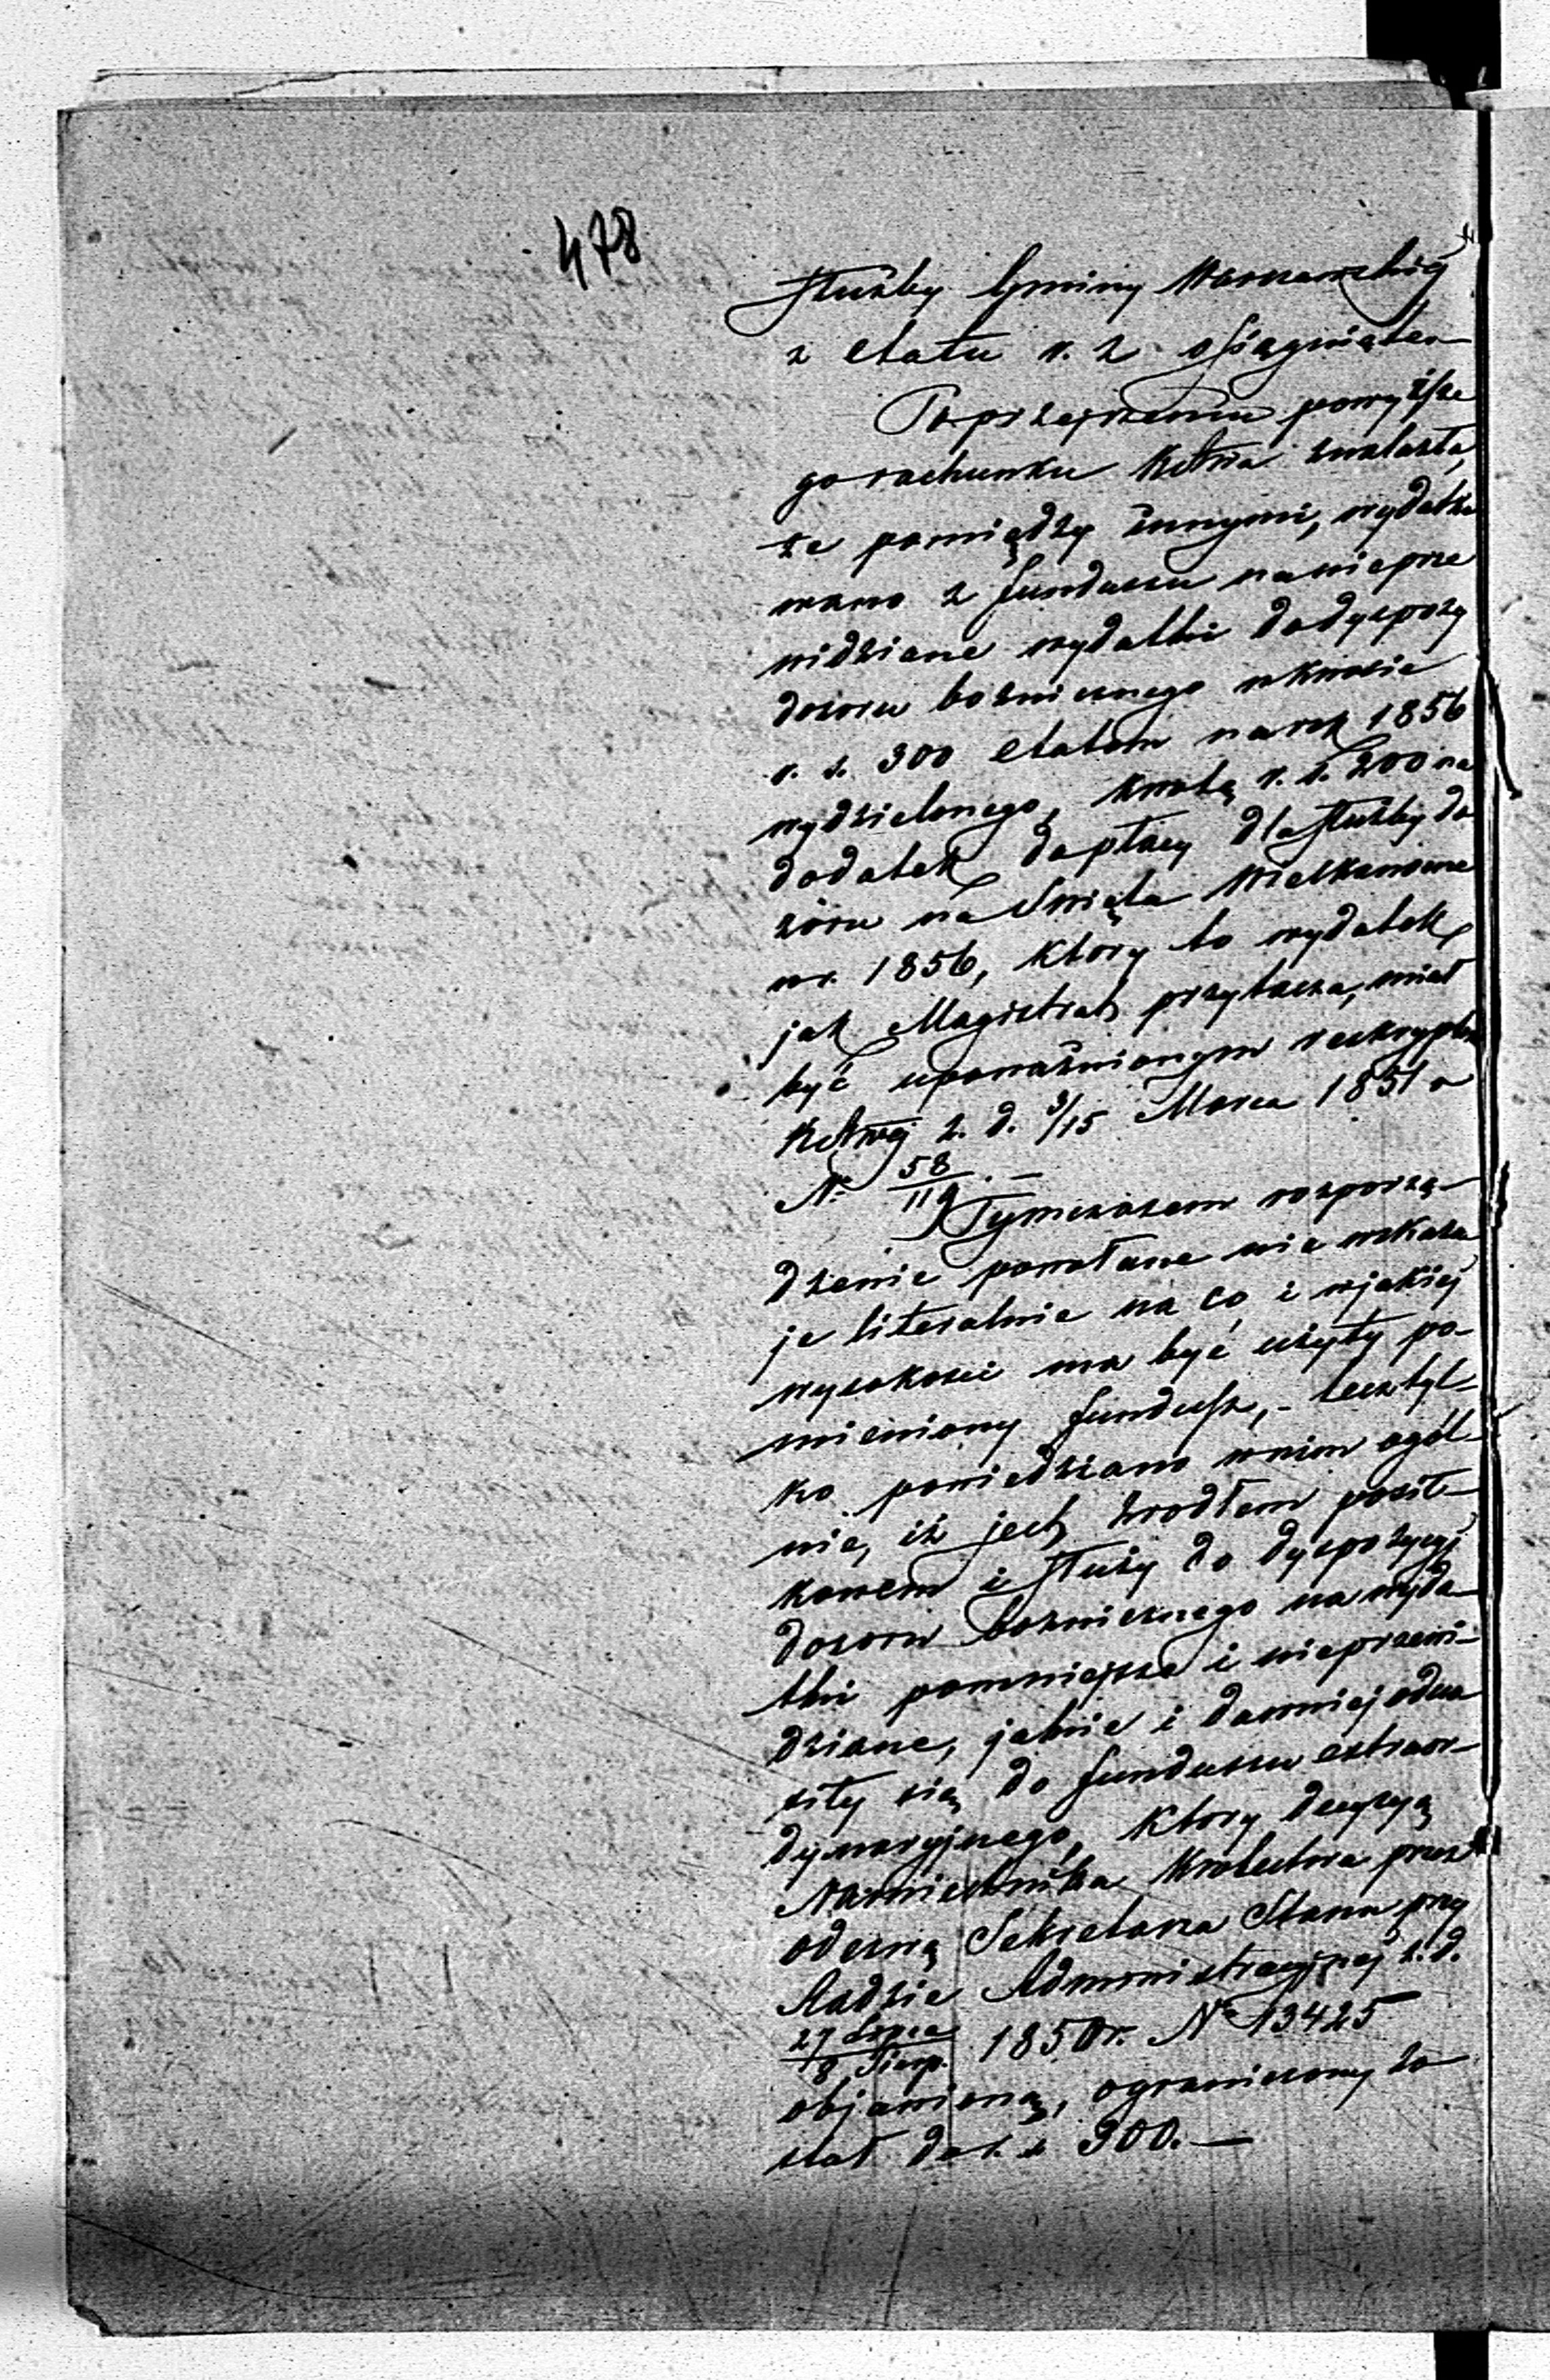 478
służby Gminy Warszawskiéj
z etatu r. z. osiągnięten
Po przejrzeniu powyższe
go rachunku Kctrla znalazła,
że pomiędzy innymi, wydatko
wano z funduszu na nieprze
widziane wydatki do dyspozy
dozoru bożniczego w kwocie
r. s. 300 etatem na rok 1856
wydzielonego, kwotę r. s. 200 na
dodatek do płacy dla służby do
zóru na Święta Wielkanocne
w r. 1856, który to wydatek
jak Magistrat przytacza, miał
być upoważnionym reskryptem
z. d. 3/15 Marca 1851 r
No 58/119. —
Tymczasem rozporzą-
dzenie powołane nie wskazu
je literalnie na co i w jakiéj
wysokości ma być użyty po-
mieniony fundusz, - lecz tyl-
ko powiedziano w nim ogól-
nie, iż jest zrodłem posił-
kowem i służy do dyspozycyj
dozoru bożniczego na wyda-
tki pomniejsze i nieprzewi-
dziane, jakie i dawniej odno
siły się do funduszu extraor-
dynaryjnego, który decyzyą
Namiestnika Krolestwa przez
odezwę Sekretarza Stanu przy
Radzie Administracyjnej z. d.
27 Lipca/8 Sierp. 1850 r. No 13425
objawioną, ograniczony zo
stał do r. s 300. —